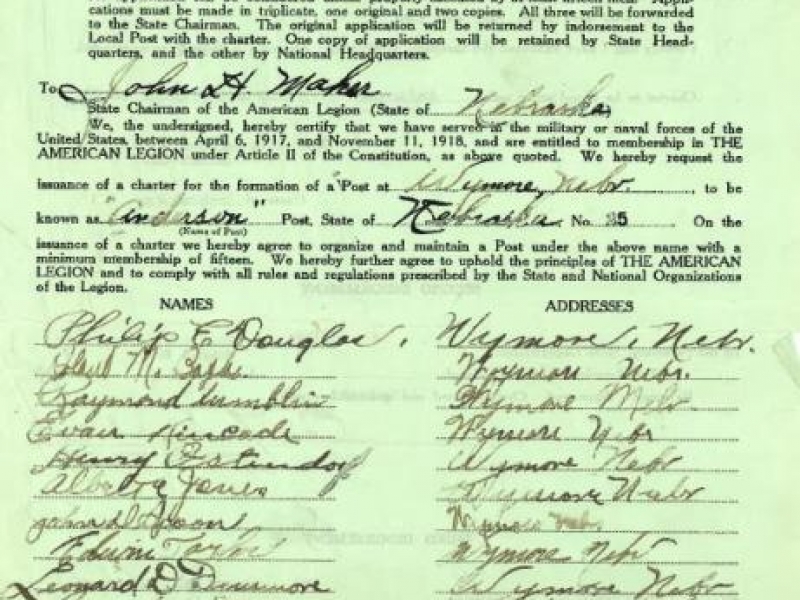 cations must be made in triplicate, one original and two copies. All three will be forwarded
to the State Chairman. The original application will be returned by indorsement to the
Local Post with the charter. One copy of application will be retained by State Head-
quarters, and the other by National Headquarters.
To John H. Maher
State Chairman of the American Legion (State of Nebraska)
We, the undersigned, hereby certify that we have served in the military or naval forces of the
United States, between April 6, 1917, and November 11, 1918, and are entitled to membership in THE
AMERICAN LEGION under Article II of the Constitution, as above quoted. We hereby request the
issuance of a charter for the formation of a Post at Wymore, Nebr. to be
known as "Anderson" Post, State of Nebraska. No. 25 On the
(Name of Post)
issuance of a charter we hereby agree to organize and maintain a Post under the above name with a
minimum membership of fifteen. We hereby further agree to uphold the principles of THE AMERICAN
LEGION and to comply with all rules and regulations prescribed by the State and National Organizations
of the Legion.
NAMES ADDRESSES
Philip E Douglas, Wymore, Nebr.
M. Wymore Nebr.
Raymond Wymore Nebr.
Evan Kincade Wymore Nebr
Henry Wymore Nebr
Jones Wymore Nebr
John Wymore Nebr.
Edwin Wymore Nebr
Leonard D Dinsmore Wymore Nebr